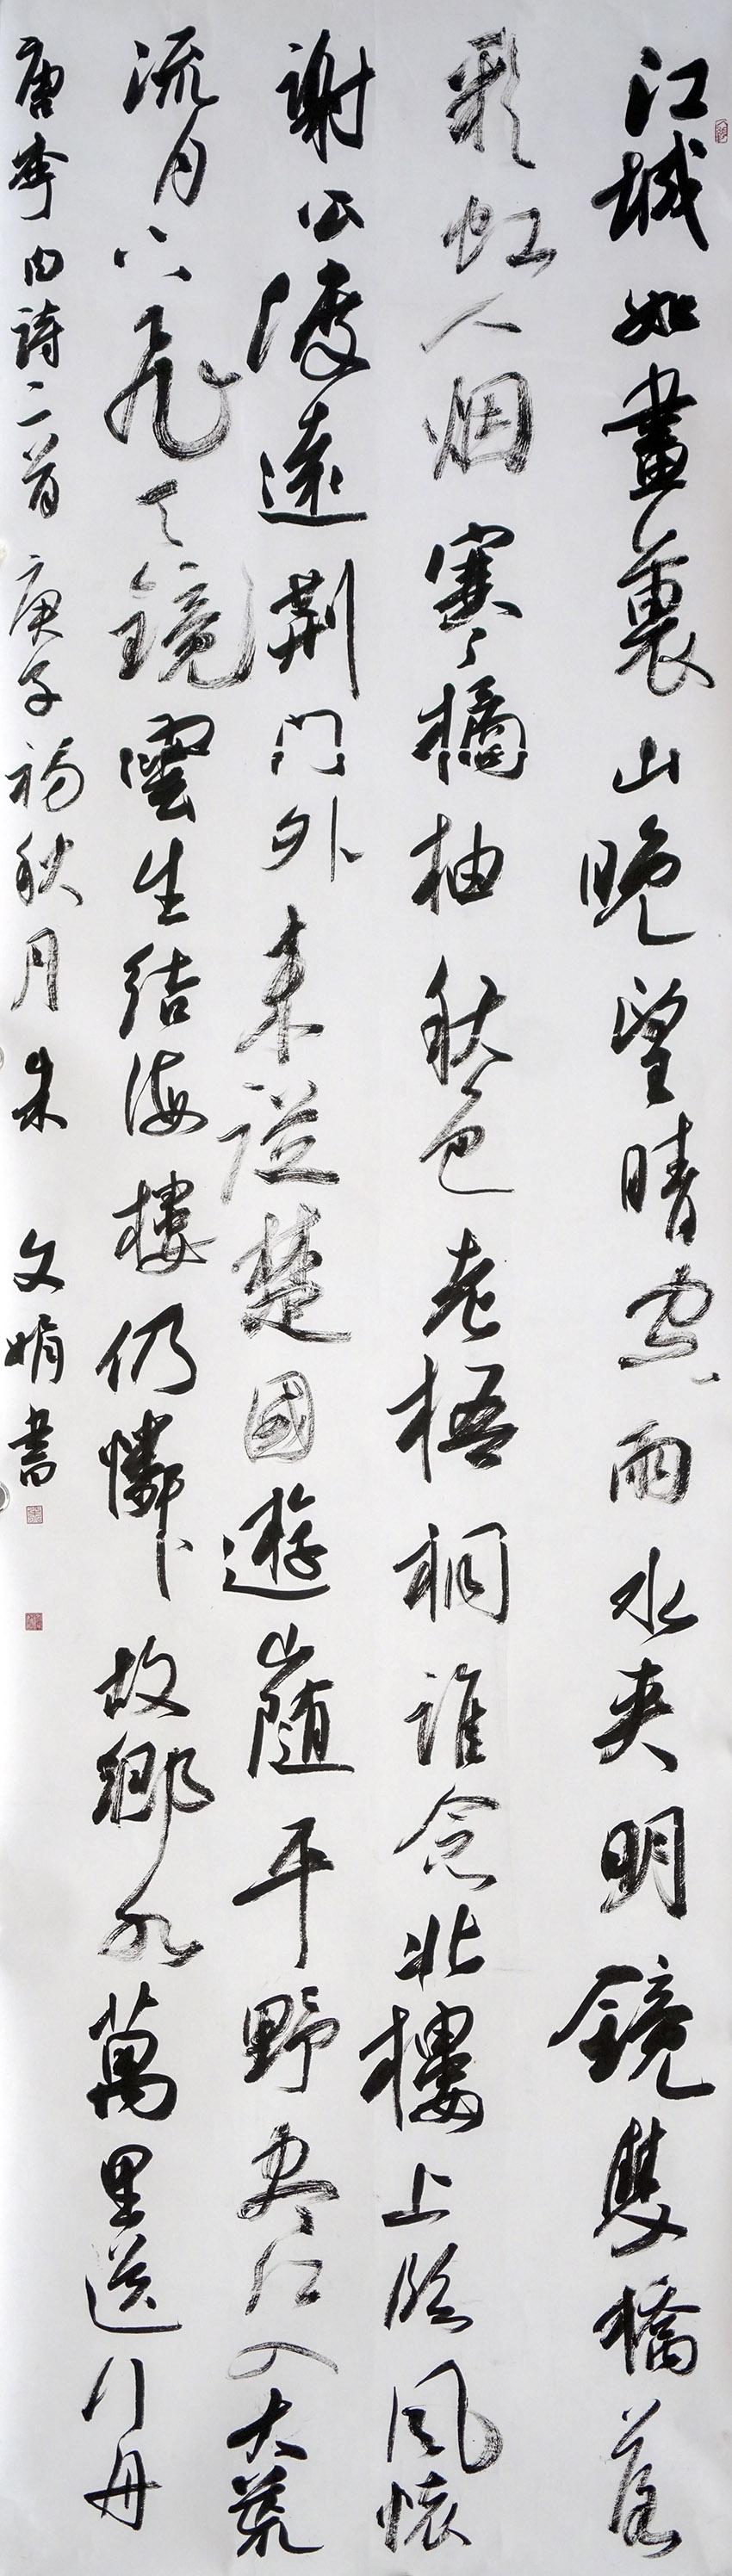 江城如畫裏山晚望晴空雨水夾明鏡雙橋落
彩虹人烟寒橘柚秋色老梧桐誰念北樓上臨風懷
謝公渡遠荆门外来從楚國遊山随平野尽江入大荒
流月下飛天鏡雲生結海樓仍憐故鄉水萬里送行舟
唐李白詩二首庚子秋月朱文娟書